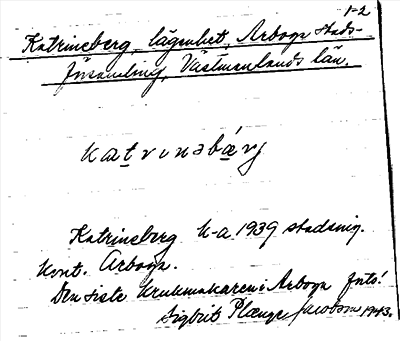 1-2
Katrineberg, lägenhet, Arboga stads-
församling, Västmanlands län.
katrinəbárj
Katrineberg k-a 1939 stadsing.
Kont. Arboga.
Den siste krukmakaren i Arboga foto!
Sigbrit Plænge Jacobson 1943.